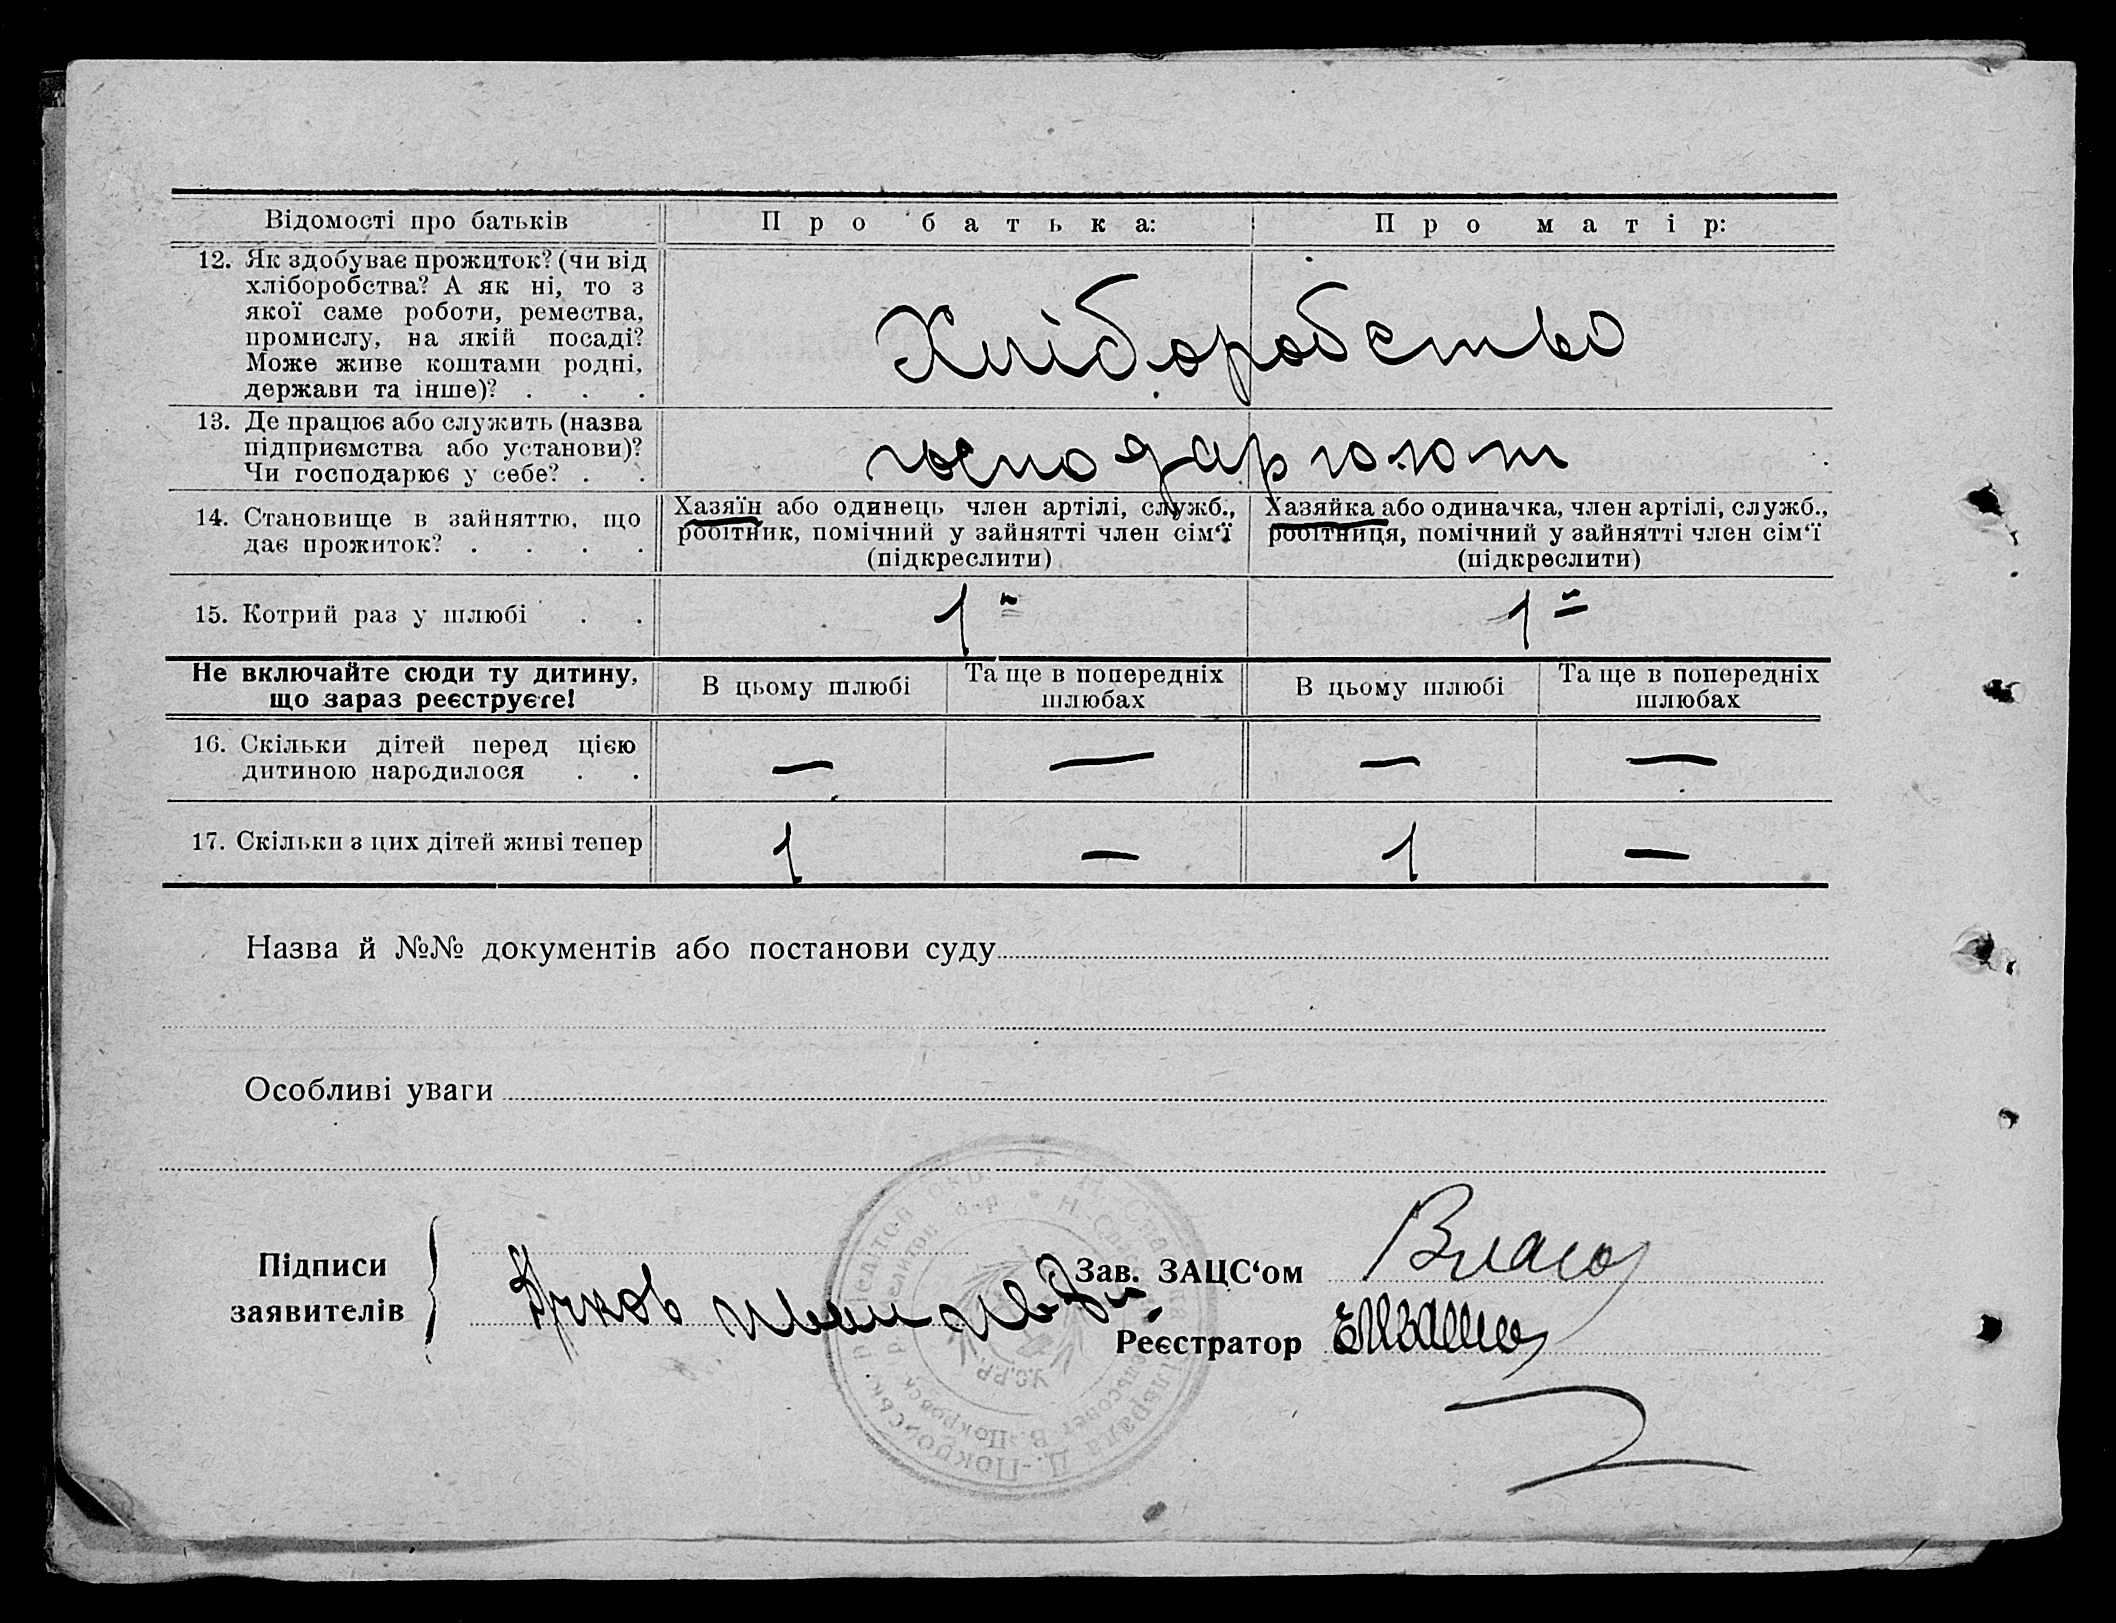 Відомості про батьків
Про батька:
Про матір:
12. Як здобуває прожиток? (чи від
хліборобства? А як ні, то з
якої саме роботи, ремества,
промислу, на якій посаді?
Може живе коштами родні,
держави та інше)? . . .
Хліборобство
13. Де працює або служить (назва
підприємства або установи)?
Чи господарює у себе? . .
господарюют
14. Становище в зайняттю, що
дає прожиток? . . . .
Хазяїн або одинець член артілі, служб.,
робітник, помічний у зайнятті член сім‘ї
(підкреслити)
Хазяйка або одиначка, член артілі, служб.,
робітниця, помічний у зайнятті член сім‘ї
(підкреслити)
15. Котрий раз у шлюбі . .
1й
1й
Не включайте сюди ту дитину,
що зараз реєструєте!
В цьому шлюбі
Та ще в попередніх
шлюбах
В цьому шлюбі
Та ще в попередніх
шлюбах
16. Скільки дітей перед цією
дитиною народилося . .
— — — —
17. Скільки з цих дітей живі тепер
1 — 1 —
Назва й №№ документів або постанови суду
Особливі уваги
Підписи
заявителів
Зав. ЗАЦС‘ом
Реєстратор
У.С.Р.Р.